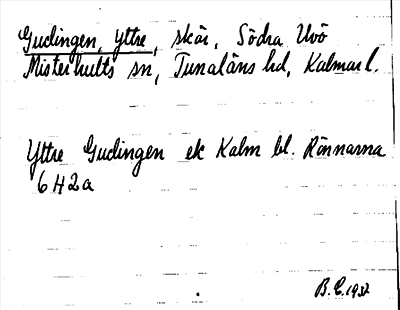 Gudingen, Yttre, skär, Södra Uvö
Misterhults sn, Tunaläns hd, Kalmar l.
Yttre Gudingen ek Kalm bl. Rönnarna
6H2a
B.E. 1932